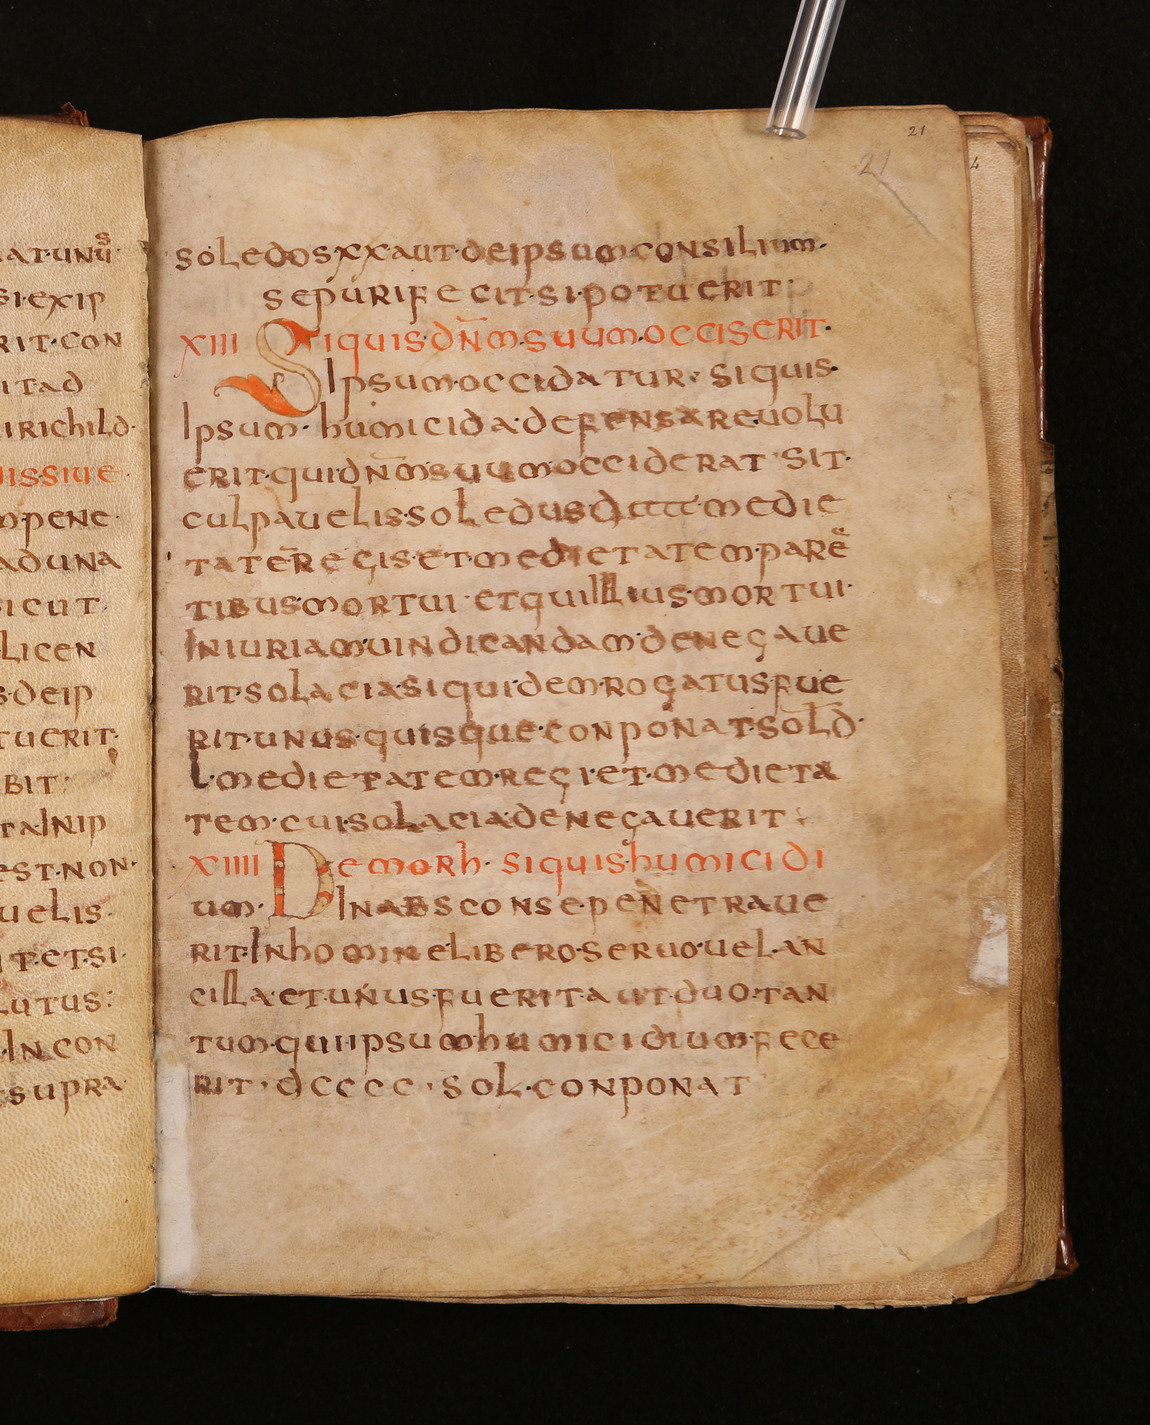 21
21
4
ATUNUS·
SI·EXIP
RIT·CON
ITAD
IRICHILD·
ISSIUE·
M·PENE·
ADUNA
ICUT·
LICEN
S·DEIP
TUERIT·
BIT·
TAINIP
EST·NON·
UELIS·
T·ET·SI·
LUTUS:
·IN·CON
SUPRA·
SOLEDOS·XX·AUT·DEIPSUM·CONSILIUM·
SEPURIFECIT·SI·POTUERIT:
XIII SIQUIS·DN̄M·SUUM·OCCISERIT·
IPSUM·OCCIDATUR· SIQUIS·
IPSUM· HUMICIDA·DEFENSARE·UOLU
ERIT·QUI·DN̄M·SUUM·OCCIDERAT·SIT·
CULPAUELIS·SOLEDUS·DCCCC·MEDIE
TATĒREGIS·ET·MEDIETATEM·PARĒ
TIBUS·MORTUI·ETQUILLIUS·MORTUI·
INIURIAM·UINDICANDAM·DENEGAUE
RIT·SOLACIA·SIQUIDEM·ROGATUS·FUE
RIT·UNUS·QUISQUE·CONPONAT·SOLD·
L·MEDIETATEM·REGI·ET·MEDIETA
TEM·CUI·SOLACIA·DENEGAUERIT·
XIIII DEMORH· SIQUIS·HUMICIDI
UM· INABSCONSE·PENETRAUE
RIT·INHOMINELIBERO·SERUO·UEL·AN
CILLA·ET·UNUS·FUERIT·AUT·DUO·TAN
TUM·QUI·IPSUM·HUMICIDIUM·FECE
RIT·DCCCC·SOL·CONPONAT